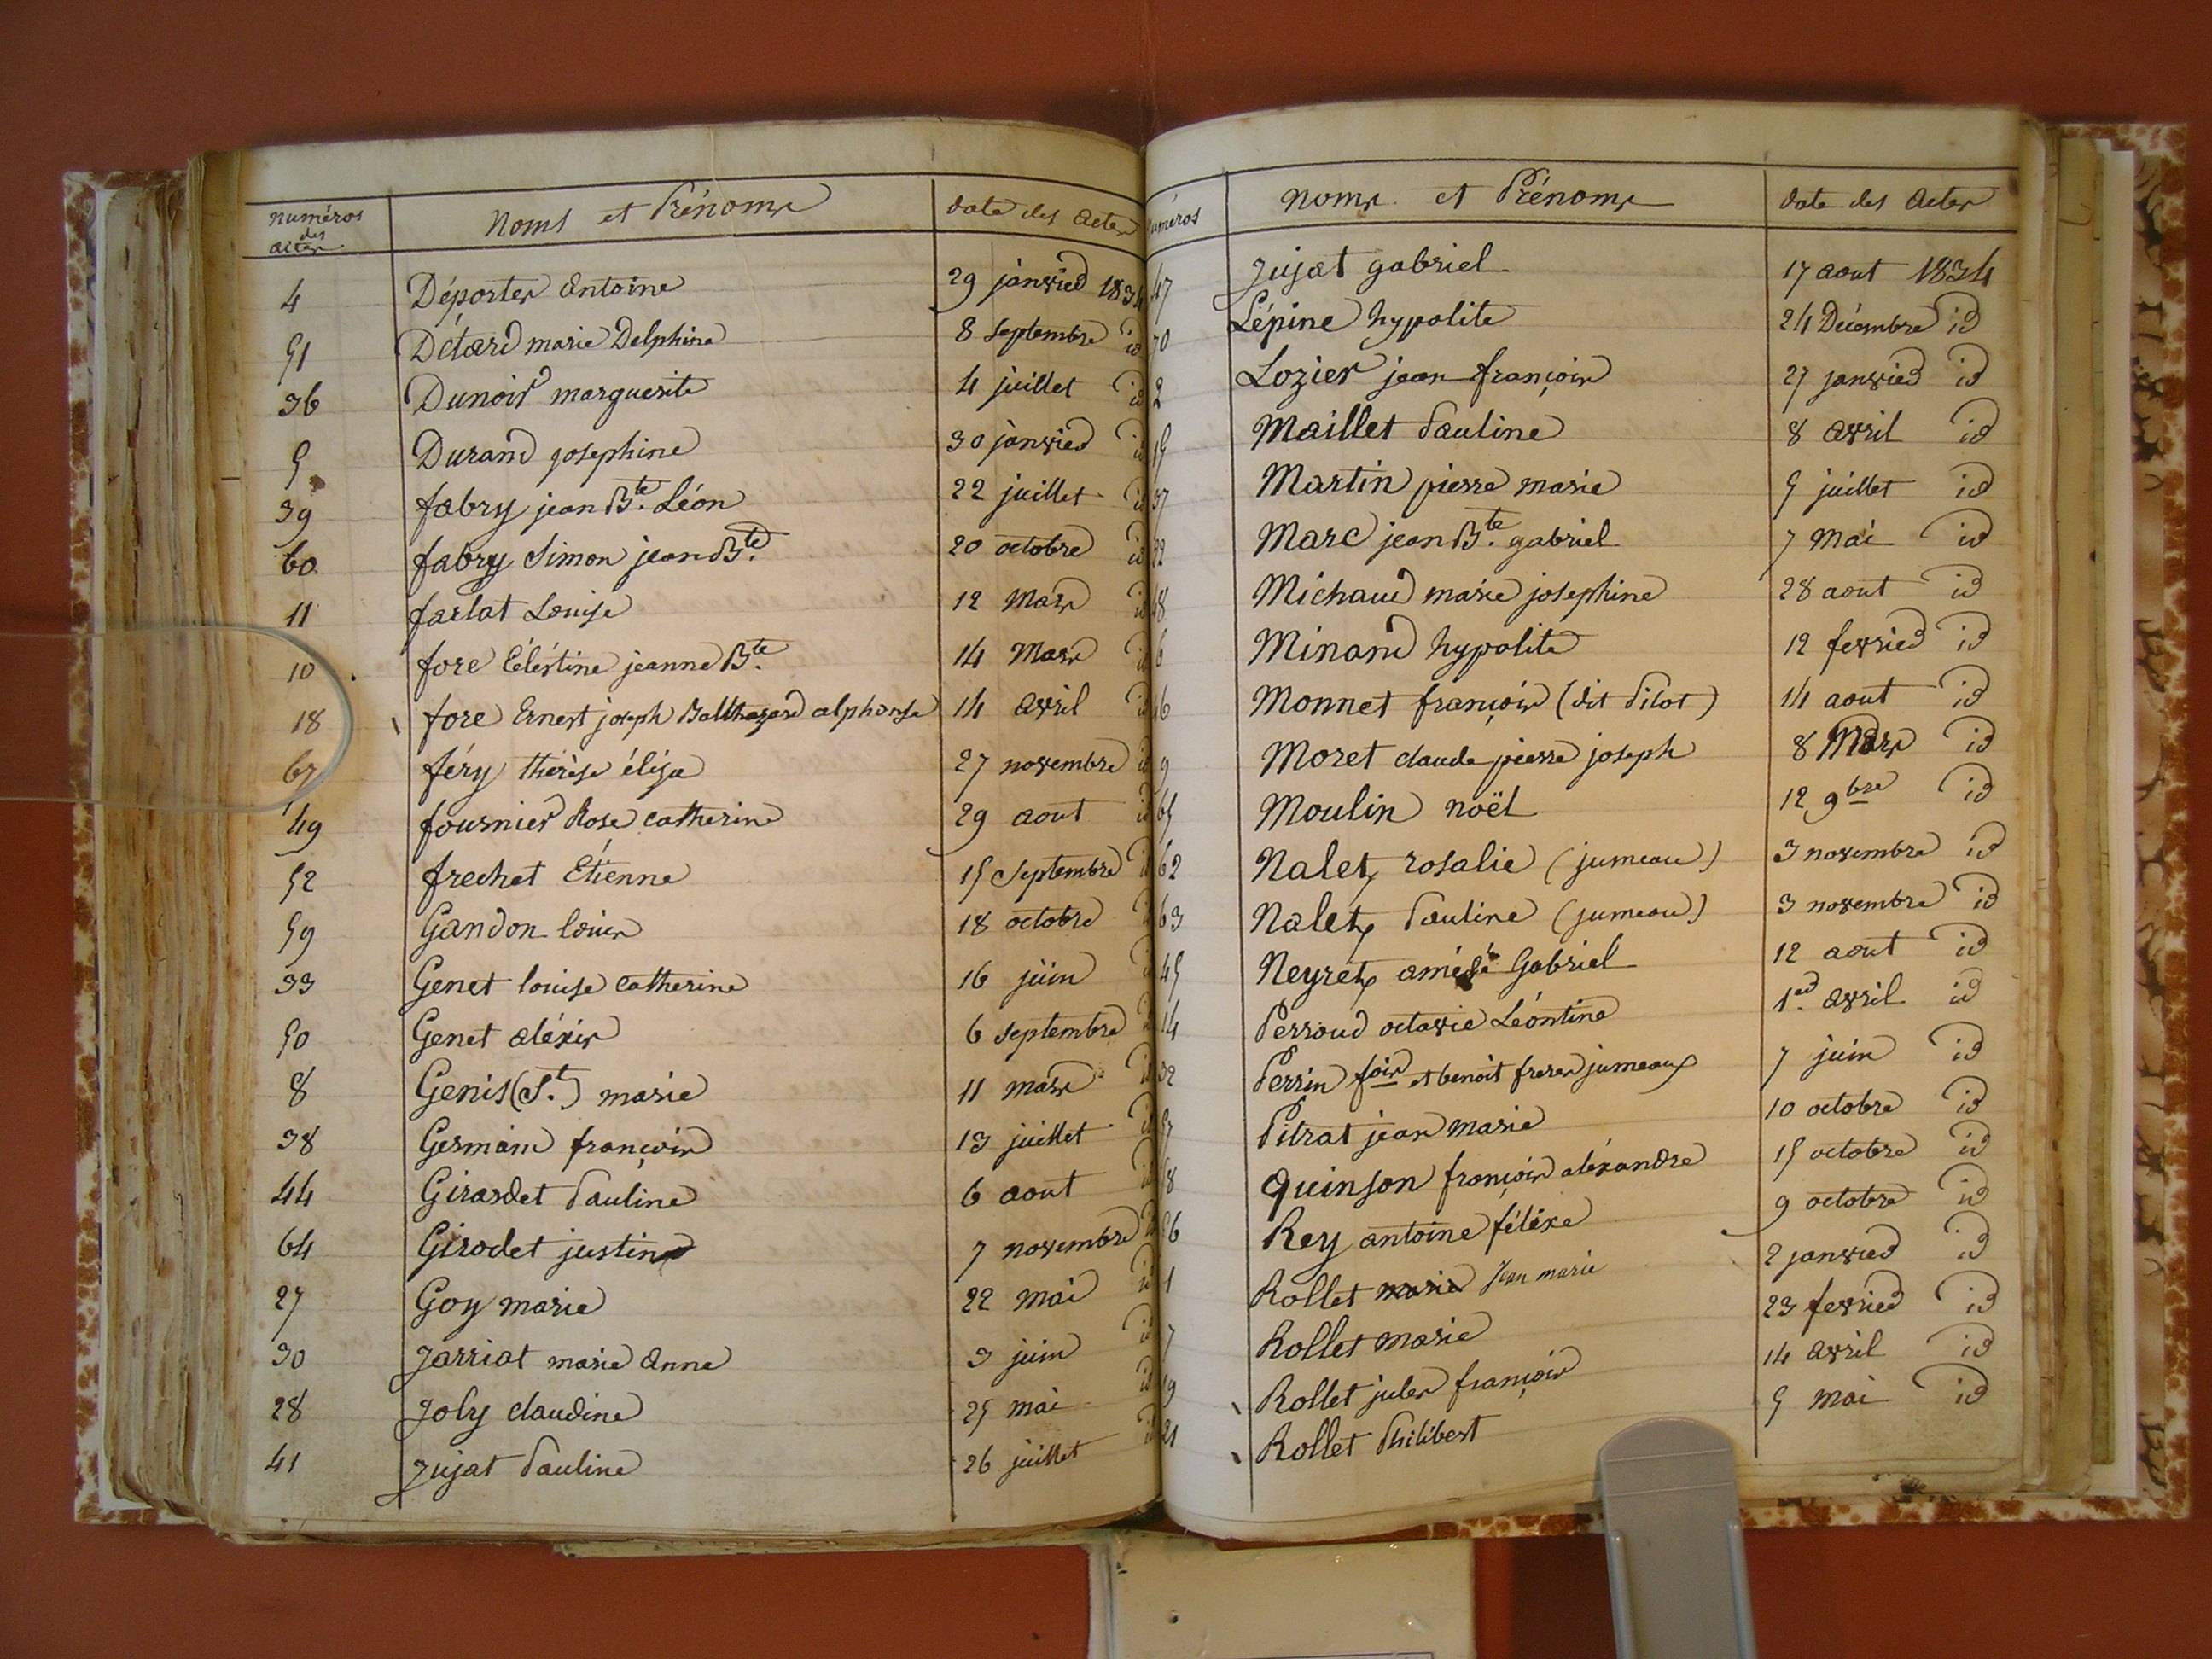 Numéros des actes Noms et Prénoms date des Actes
4 Déporter Antoine 29 janvier 1834
51 Détard marie Delphine 8 septembre id
36 Dunoir marguerite 4 juillet id
5 Durand josephine 30 janvier id
39 fabry jean Bte. Léon 22 juillet id
60 fabry Simon jean Bte. 20 octobre id
11 farlat Louise 12 Mars id
10 fore Céléstine jeanne Bte. 14 Mars id
18 fore Ernest joseph Balthazard alphonse 14 avril id
67 féry thérèse élisa 27 novembre id
49 fournier Rose catherine 29 aout id
52 frechet Etienne 15 septembre id
59 Gandon louis 18 octobre id
33 Genet louise catherine 16 juin id
50 Genet aléxis 6 septembre id
8 Genis (St.) marie 11 mars id
38 Germain françois 13 juillet id
44 Girardet Pauline 6 aout id
64 Girodet justine 7 novembre id
27 Goy marie 22 mai id
30 Jarriat marie Anne 3 juin id
28 Joly claudine 25 mai id
41 Jujat Pauline 26 juillet id
uméros Noms et Prénoms date des Actes
47 Jujat gabriel 17 aout 1834
70 Lépine hypolite 24 Décembre id
2 Lozier jean françois 27 janvier id
15 Maillet Pauline 8 avril id
37 Martin pierre marie 5 juillet id
22 Marc jean Bte. gabriel 7 Mai id
48 Michaud marie josephine 28 aout id
6 Minand hypolite 12 fevrier id
46 Monnet françois (dit Pilot) 14 aout id
9 Moret claude pierre joseph 8 Mars id
65 Moulin noël 12 9bre id
62 Nalet, rosalie (jumeau) 3 novembre id
63 Nalet, Pauline (jumeau) 3 novembre id
45 Neyret, amédé Gabriel 12 aout id
14 Perroud octavie Léontine 1er. avril id
32 Perrin fois et benoit freres jumeaux 7 juin id
57 Pitrat jean marie 10 octobre id
58 Quinson françois aléxandre 15 octobre id
56 Rey antoine féléxe 9 octobre id
1 Rollet marie Jean marie 2 janvier id
7 Rollet marie 23 fevrier id
19 Rollet jules françois 14 avril id
21 Rollet Philibert 5 mai id